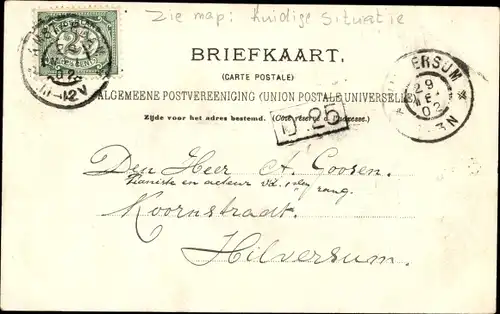 Zie map: huidige situatie
BRIEFKAART.
(CARTE POSTALE)
ALGEMEENE POSTVEREENIGING (UNION POSTALE UNIVERSELLE)
Zijde voor het adres bestemd. (Côté réservé à l'adresse.)
HILVERSUM
29
02
3N
12V
25
Den Heer A. Goosen.
Pianiste en acteur v.d. 1sten rang.
Koornstraadt.
Hilversum.